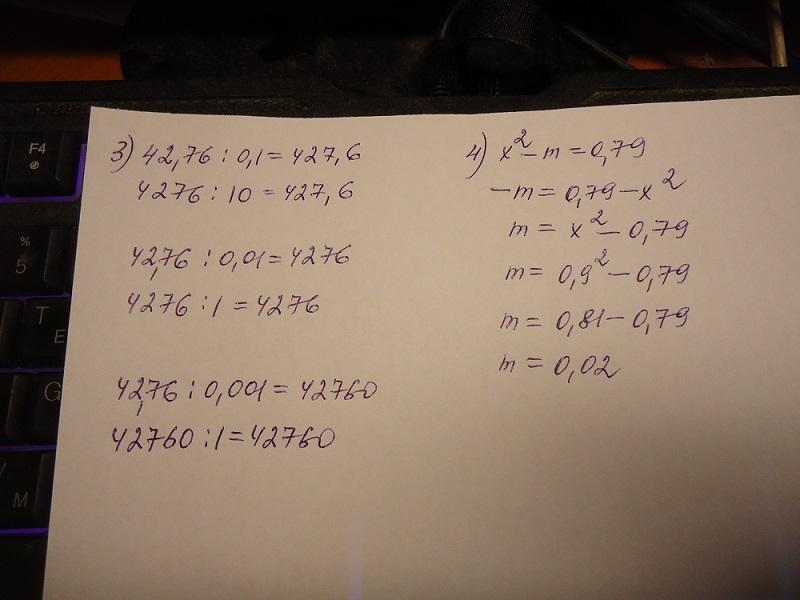 3) 42,76 : 0,1 = 427,6
4276 : 10 = 427,6
42,76 : 0,01 = 4276
4276 : 1 = 4276
42,76 : 0,001 = 42760
42760 : 1 = 42760
4) x² - m = 0,79
-m = 0,79 - x²
m = x² - 0,79
m = 0,9² - 0,79
m = 0,81 - 0,79
m = 0,02
F4
%
5
T
E
G
M